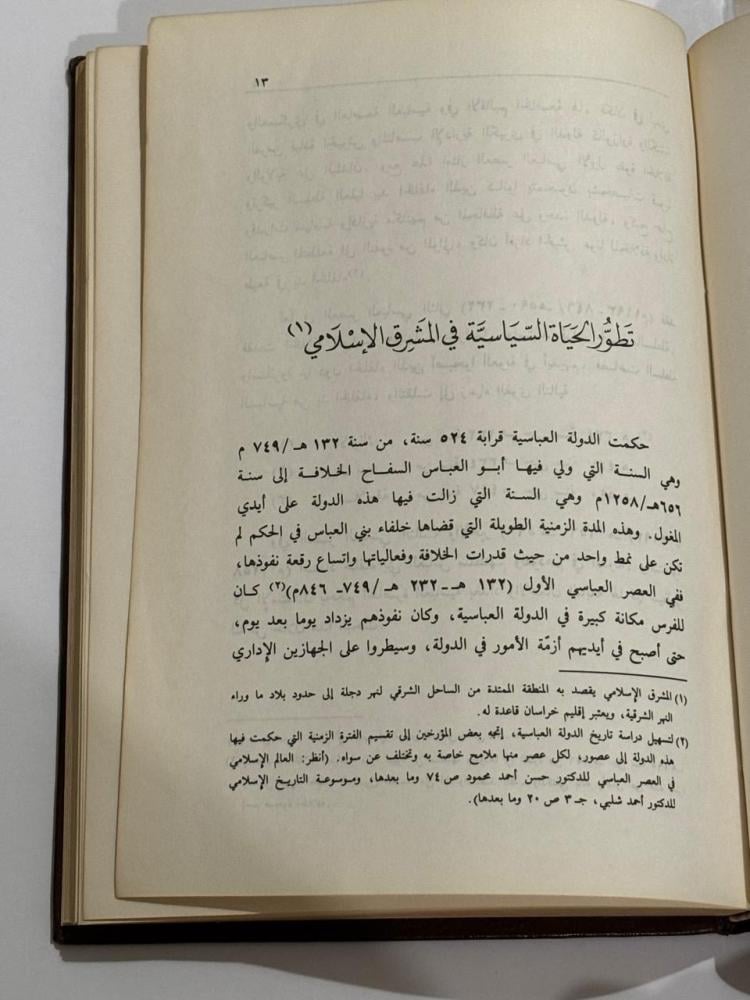 ١٣
تَطَوُّر الحَيَاة السِّيَاسِيَّة في المَشرِق الإسْلَامي (١)
حكمت الدولة العباسية قرابة ٥٢٤ سنة، من سنة ١٣٢ هـ/٧٤٩ م
وهي السنة التي ولي فيها أبو العباس السفاح الخلافة إلى سنة
٦٥٦هـ/١٢٥٨م وهي السنة التي زالت فيها هذه الدولة على أيدي
المغول. وهذه المدة الزمنية الطويلة التي قضاها خلفاء بني العباس في الحكم لم
تكن على نمط واحد من حيث قدرات الخلافة وفعالياتها واتساع رقعة نفوذها،
ففي العصر العباسي الأول (١٣٢ هـ - ٢٣٢ هـ/٧٤٩ - ٨٤٦م)(٢) كان
للفرس مكانة كبيرة في الدولة العباسية، وكان نفوذهم يزداد يوما بعد يوم،
حتى أصبح في أيديهم أزمّة الأمور في الدولة، وسيطروا على الجهازين الإداري
(١) المشرق الإسلامي يقصد به المنطقة الممتدة من الساحل الشرقي لنهر دجلة إلى حدود بلاد ما وراء
النهر الشرقية، ويعتبر إقليم خراسان قاعدة له.
(٢) لتسهيل دراسة تاريخ الدولة العباسية، إتجه بعض المؤرخين إلى تقسيم الفترة الزمنية التي حكمت فيها
هذه الدولة إلى عصور، لكل عصر منها ملامح خاصة به وتختلف عن سواه. (أنظر: العالم الإسلامي
في العصر العباسي للدكتور حسن أحمد محمود ص ٧٤ وما بعدها، وموسوعة التاريخ الإسلامي
للدكتور أحمد شلبي، جـ ٣ ص ٢٠ وما بعدها).